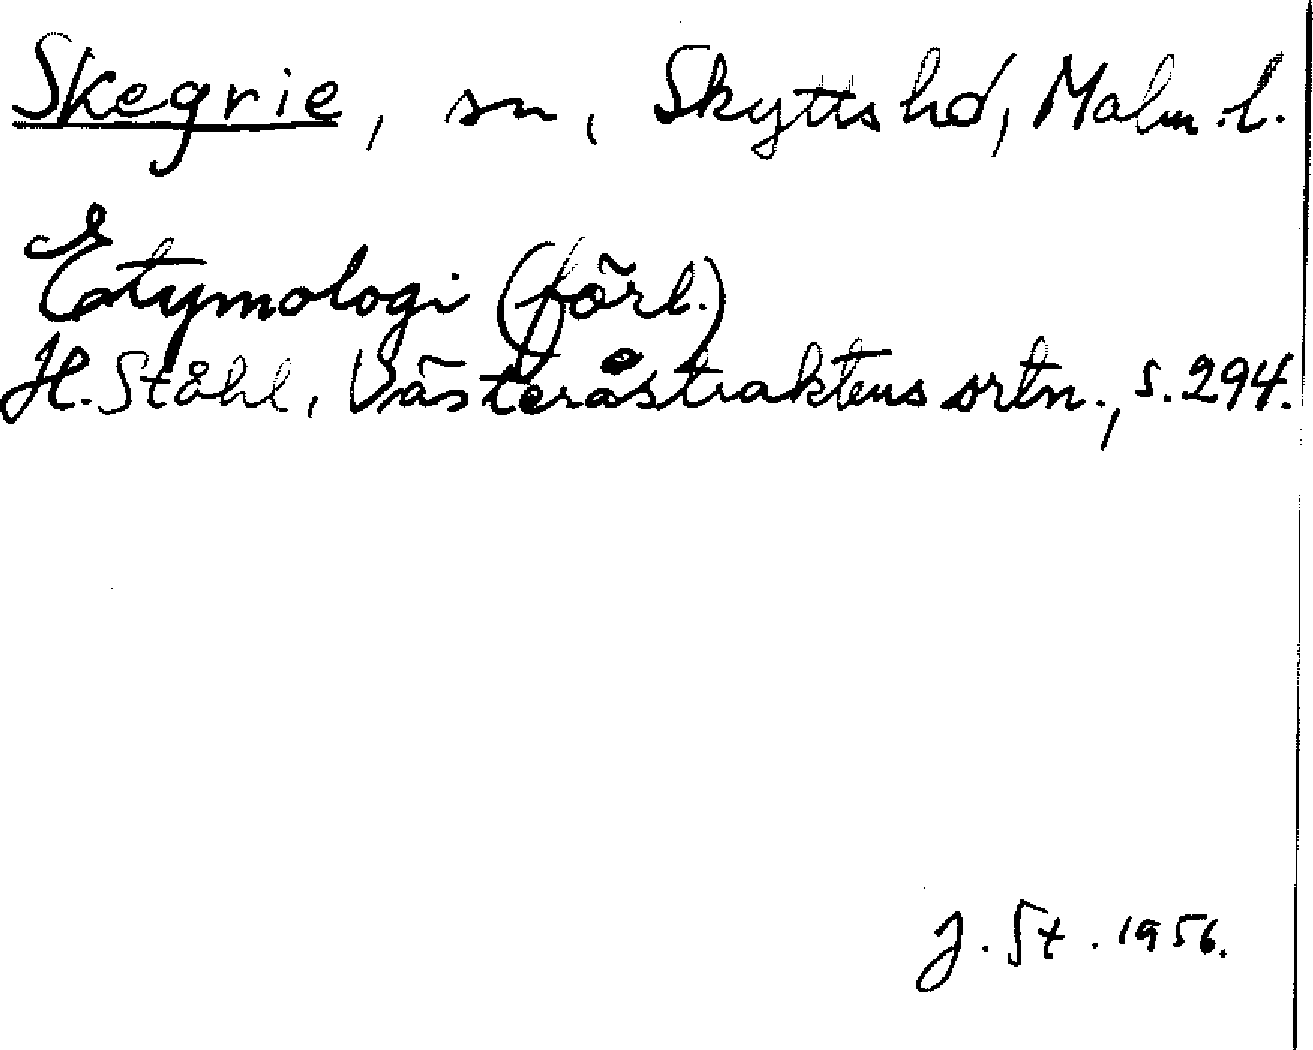 Skegrie, sn, Skytts hd, Malm. l.
Etymologi (förl.)
H. Ståhl, Västeråstraktens ortn., s. 294.
J. St. 1956.